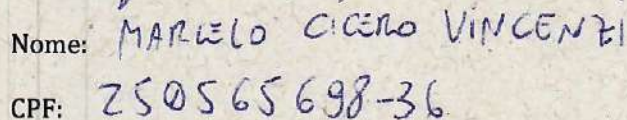 Nome: MARCELO CICERO VINCENZI
CPF: 250565698-36